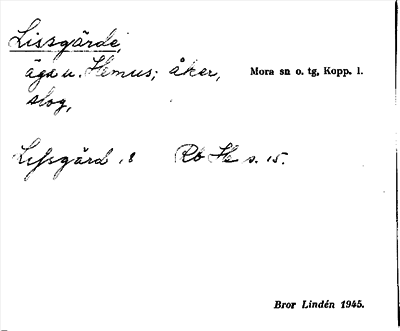 Lissgärde,
äga u. Hemus; åker, Mora sn o. tg, Kopp. l.
slog,
Lissgård, 8 Rö He s. 15.
Bror Lindén 1945.